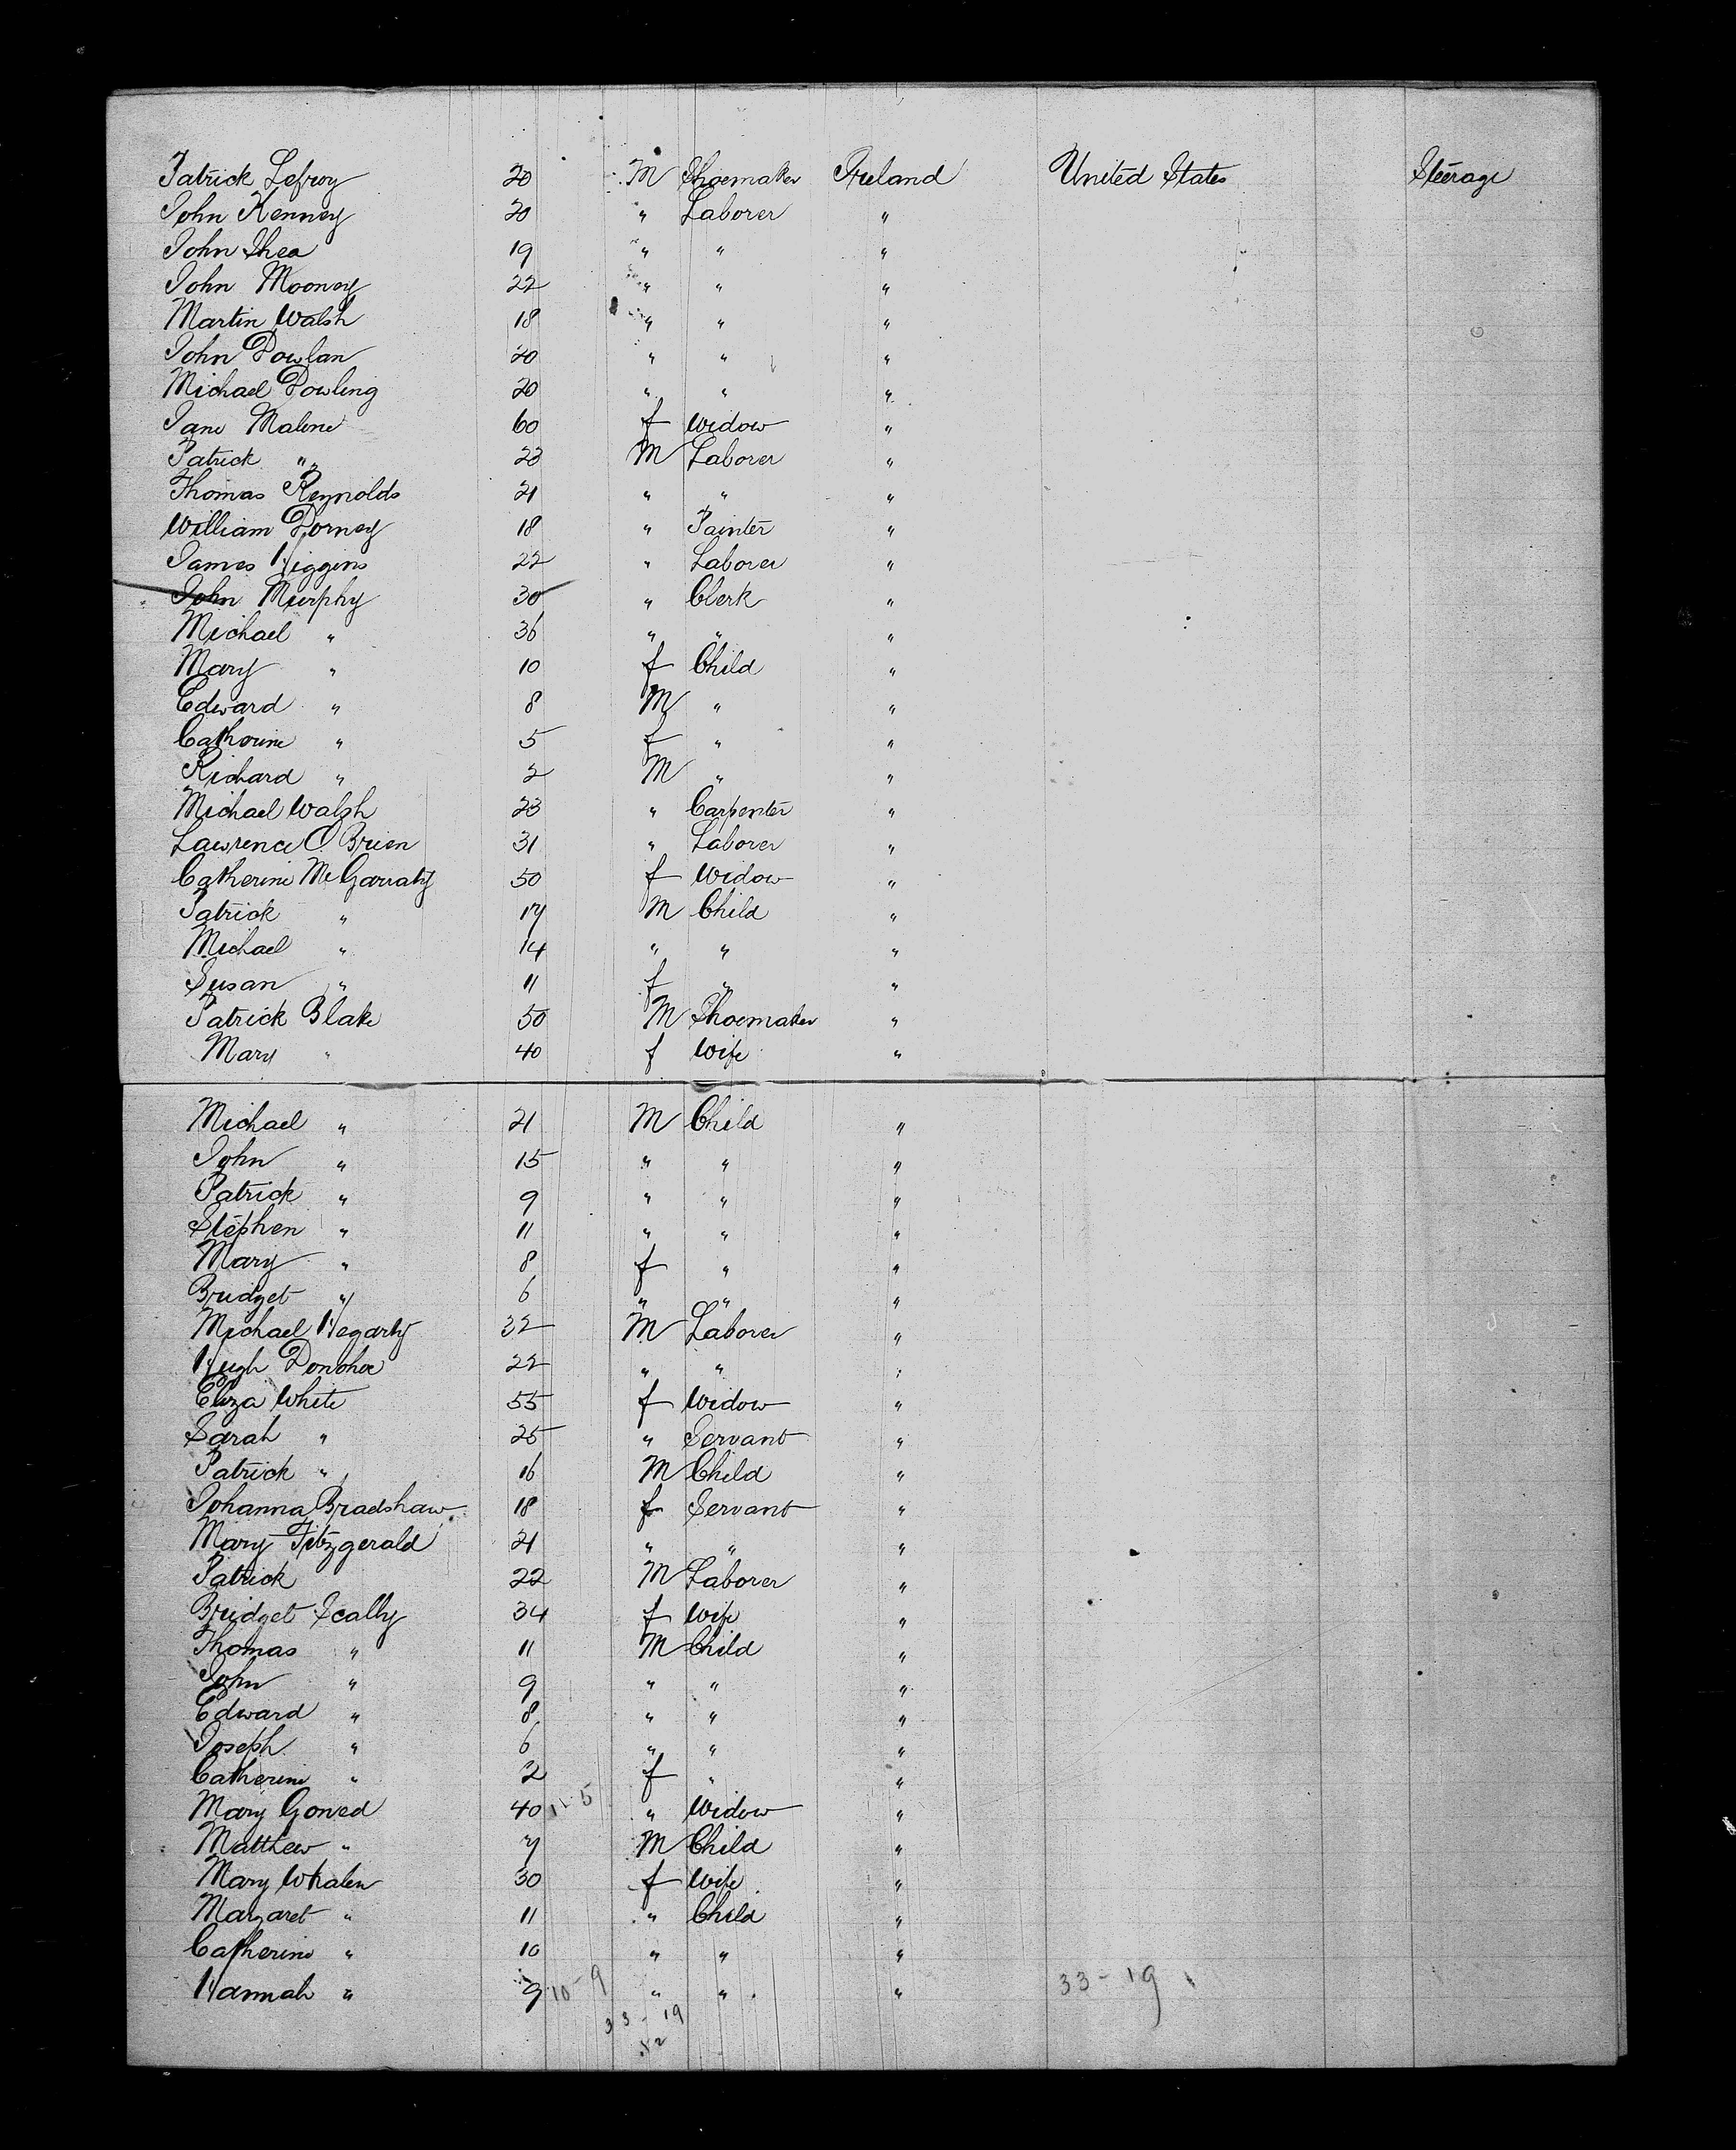 Patrick Lefroy 20 M Shoemaker Ireland United States Steerage
John Kenney 20 " Laborer "
John Shea 19 " " "
John Mooney 22 " " "
Martin Walsh 18 " " "
John Dowlan 20 " " "
Michael Dowling 20 " " "
Jane Malone 60 f Widow "
Patrick " 23 M Laborer "
Thomas Reynolds 21 " " "
William Dorney 18 " Painter "
James Higgins 22 " Laborer "
John Murphy 30 " Clerk "
Michael " 36 " " "
Mary " 10 f Child "
Edward " 8 M " "
Catherine " 5 f " "
Richard " 2 M " "
Michael Walsh 23 " Carpenter "
Lawrence O Brien 31 " Laborer "
Catherine McGarraty 50 f Widow "
Patrick " 17 M Child "
Michael " 14 " " "
Susan " 11 f " "
Patrick Blake 50 M Shoemaker "
Mary " 40 f Wife "
Michael " 21 M Child "
John " 15 " " "
Patrick " 9 " " "
Stephen " 11 " " "
Mary " 8 f " "
Bridget " 6 " " "
Michael Hegarty 32 M Laborer "
Hugh Donohoe 22 " " "
Eliza White 55 f Widow "
Sarah " 25 " Servant "
Patrick " 16 M Child "
Johanna Bradshaw 18 f Servant "
Mary Fitzgerald 21 " " "
Patrick 22 M Laborer "
Bridget Scally 34 f Wife "
Thomas " 11 M Child "
John " 9 " " "
Edward " 8 " " "
Joseph " 6 " " "
Catherine " 2 f " "
Mary Gowed 40 11-5 " Widow "
Matthew " 7 M Child "
Mary Whalen 30 f Wife "
Margaret " 11 " Child "
Catherine " 10 " " "
Hannah " 9 10-9 " " " 33-19
33-19
12